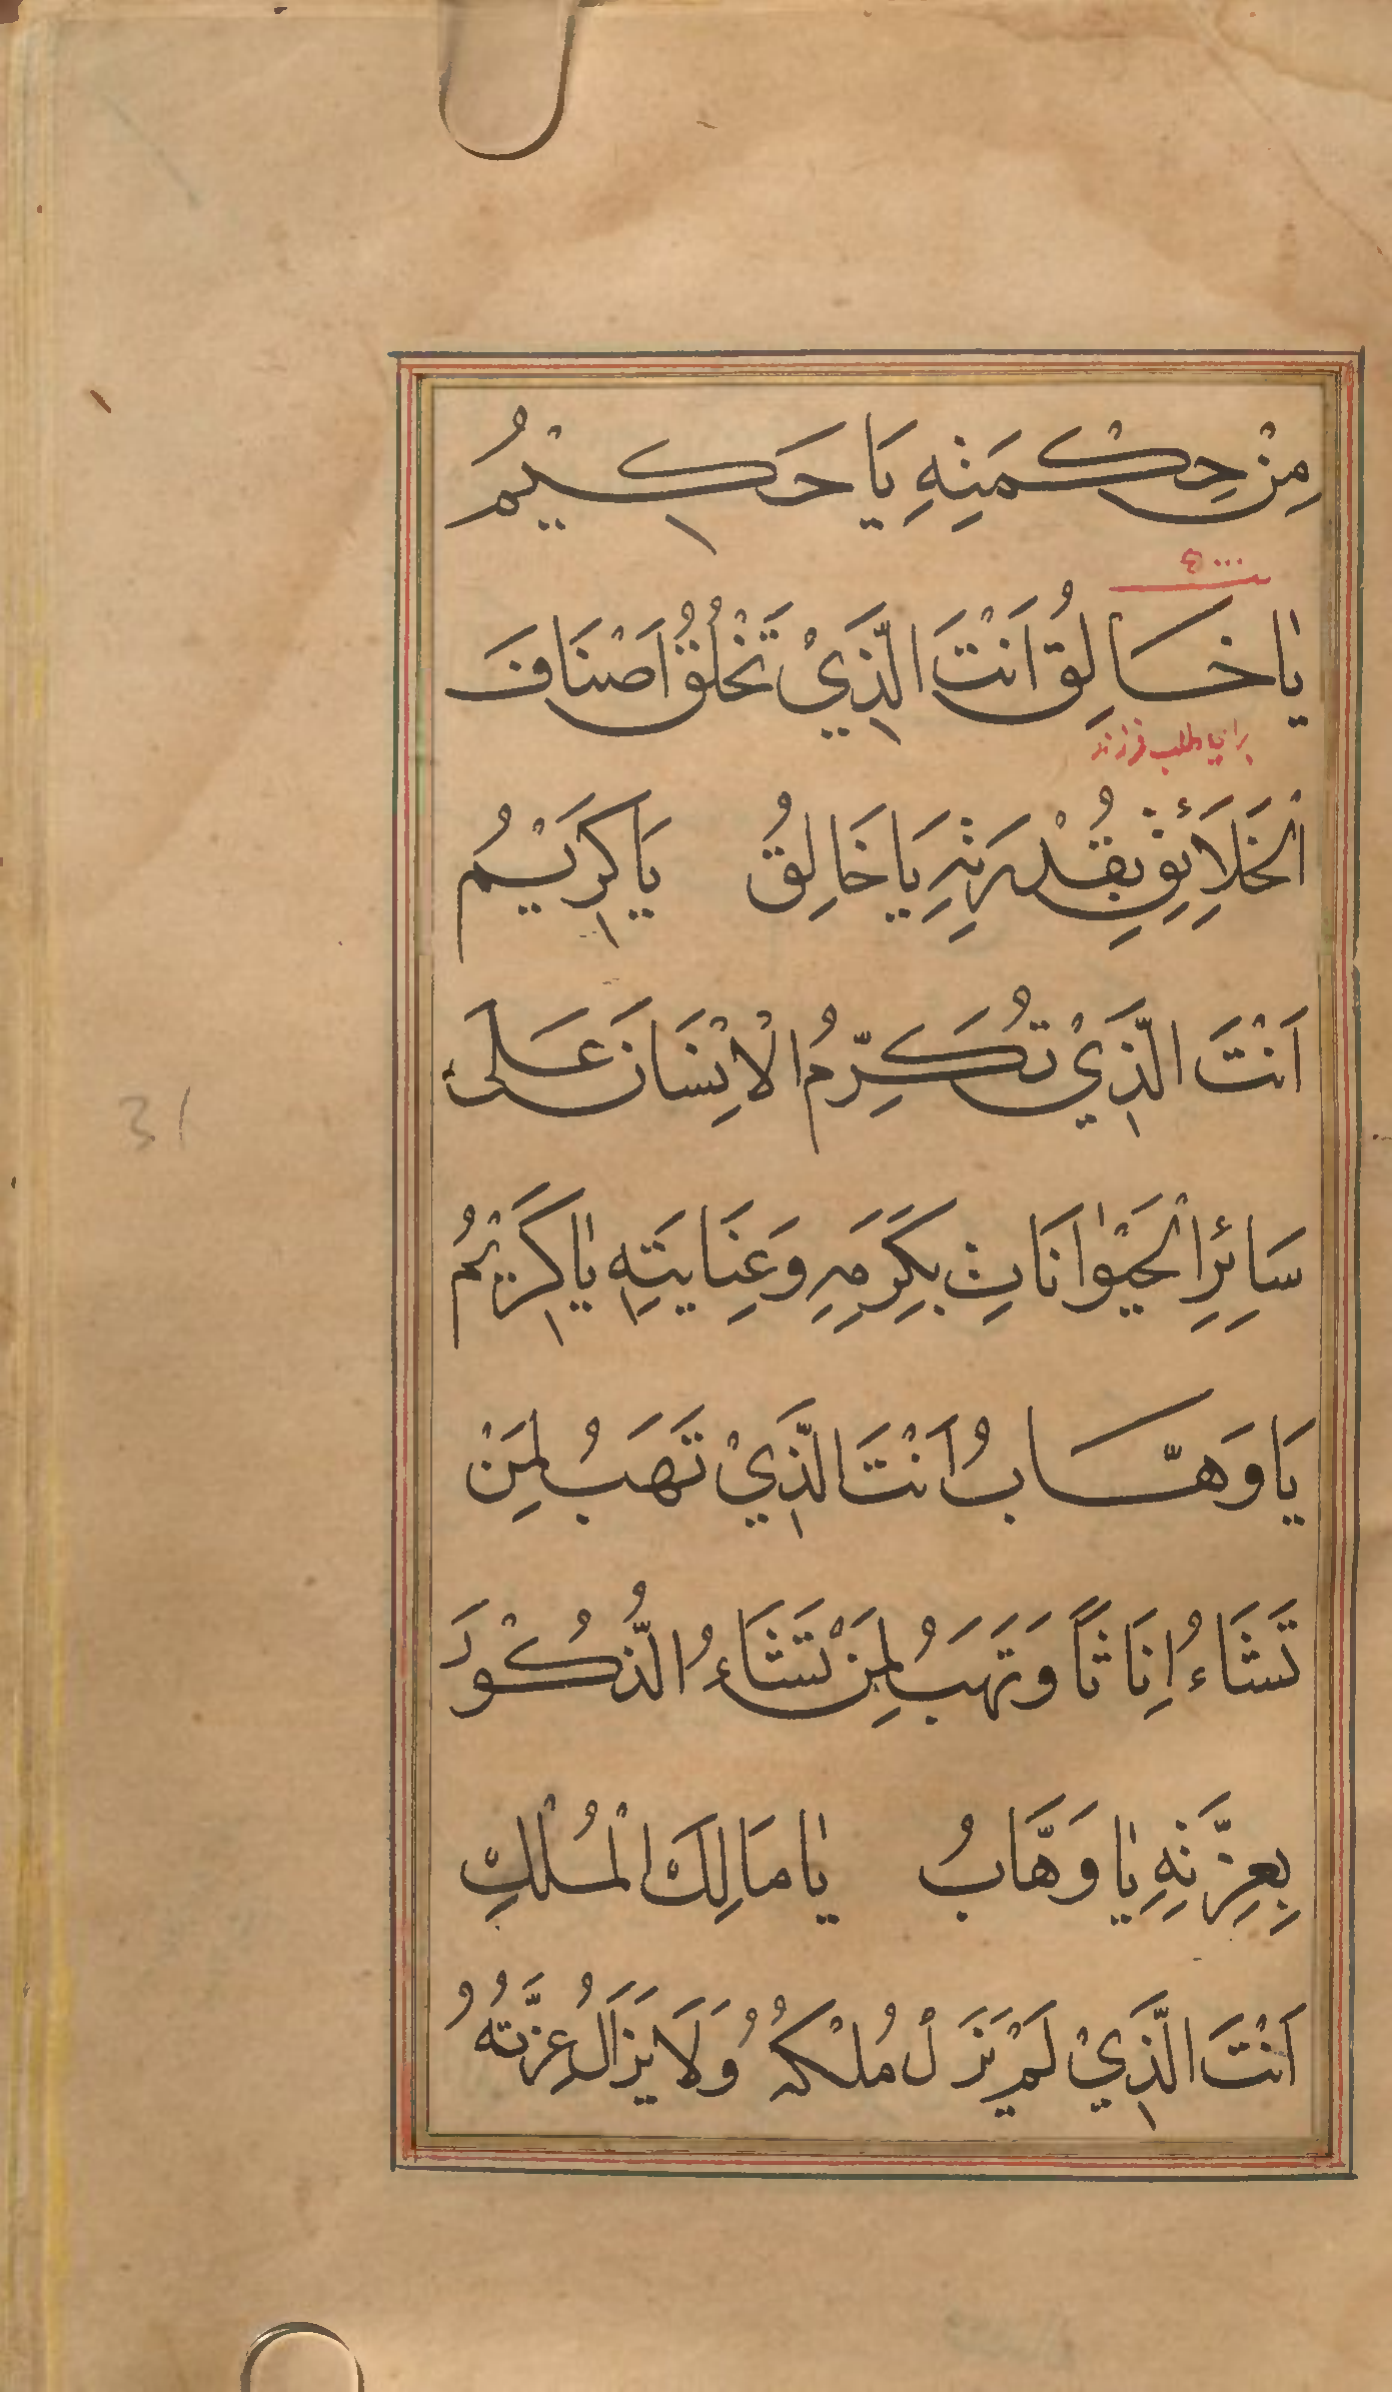 مِنْ حِكْمَتِهِ يَا حَكِيْمُ
٤٠٠٠
يٰا خَالِقُ اَنْتَ الَّذِيْ تَخْلُقُ اَصْنَافَ
براى طلب فرزند
الْخَلَائِقِ بِقُدْرَتِهِ يَا خَالِقُ يَا كَرِيْمُ
اَنْتَ الَّذِيْ تُكَرِّمُ الْاِنْسَانَ عَلَى
سَائِرِ الْحَيْوٰانَاتِ بِكَرَمِهِ وَعِنَايَتِهِ يٰا كَرِيْمُ
يَا وَهَّابُ اَنْتَ الَّذِيْ تَهَبُ لِمَنْ
تَشَاءُ اِنَاثًا وَتَهَبُ لِمَنْ تَشَاءُ الذُّكُوْرَ
بِعِزَّتِهِ يٰا وَهَّابُ يٰا مَالِكَ الْمُلْكِ
اَنْتَ الَّذِيْ لَمْ يَزَلْ مُلْكُهُ وَلَا يَزَالُ عِزَّتُهُ
31